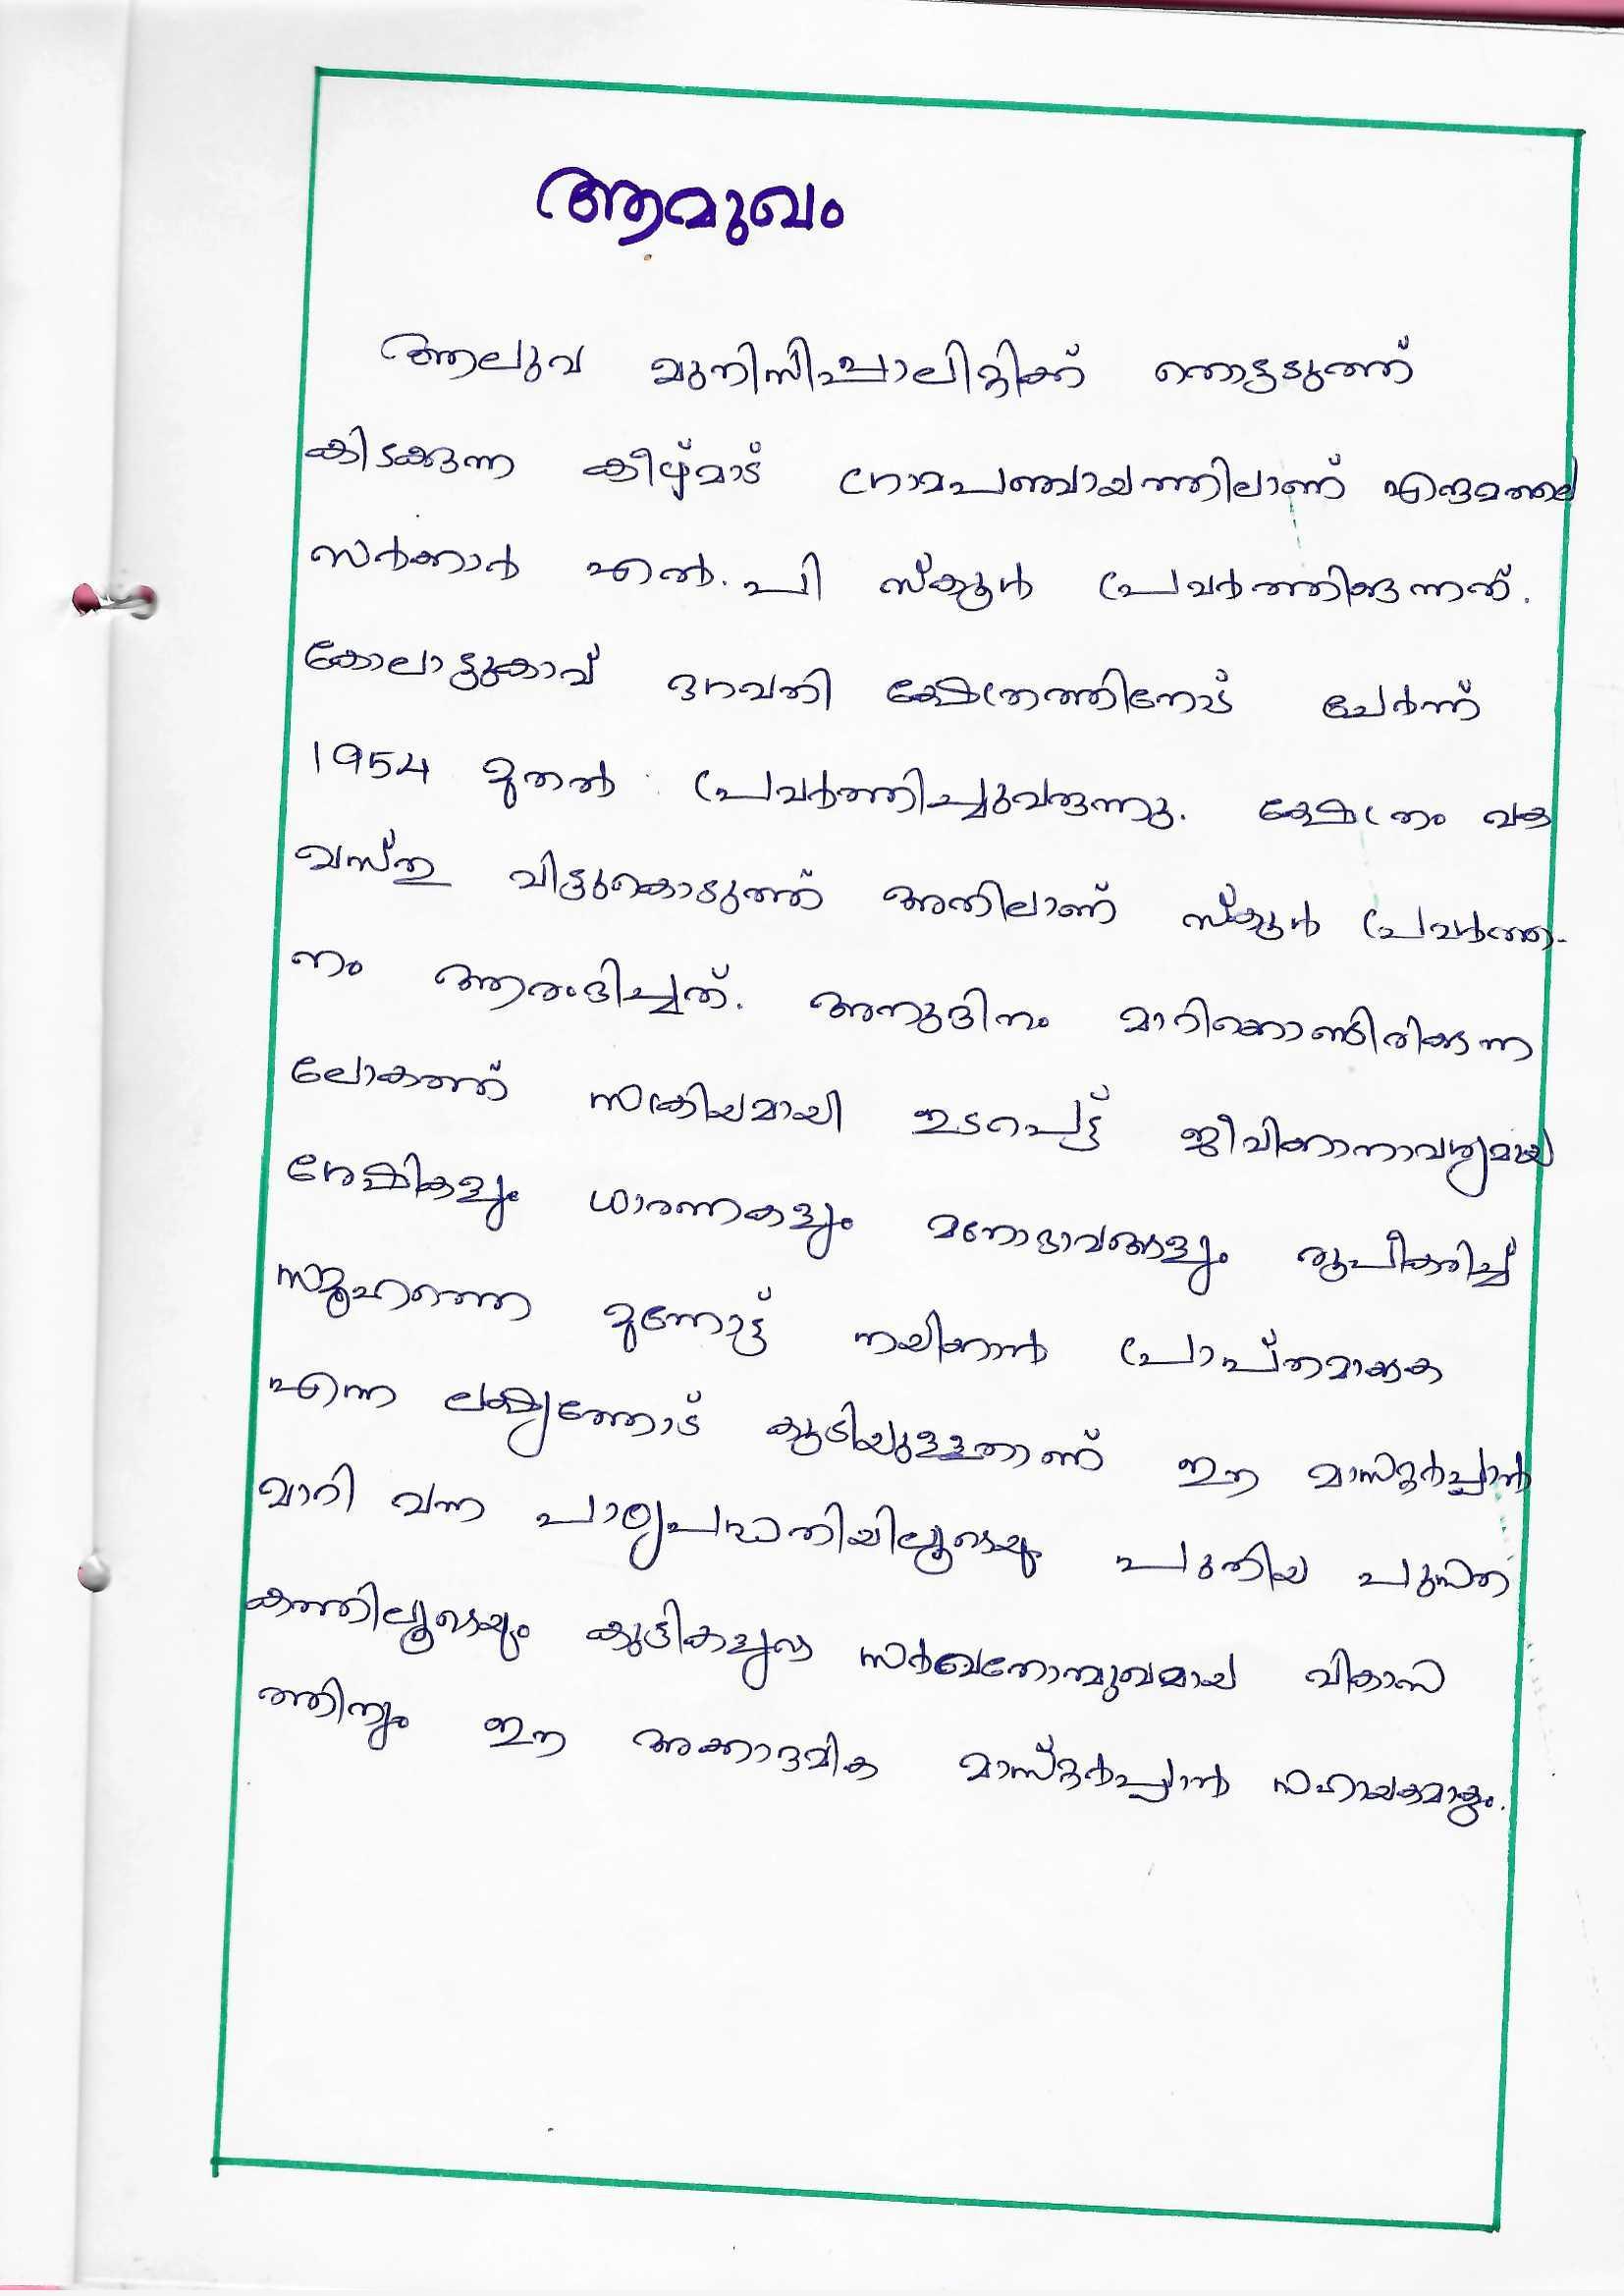 ആമുഖം
ആലുവ മുനിസിപ്പാലിറ്റിക്ക് തൊട്ടടുത്ത്
കിടക്കുന്ന കീഴ്മാട് ഗ്രാമപഞ്ചായത്തിലാണ്
സർക്കാർ എൽ.പി സ്കൂൾ പ്രവർത്തിക്കുന്നത്.
കോലാട്ടുകാവ് ഭഗവതി ക്ഷേത്രത്തിനോട് ചേർന്ന്
1954 മുതൽ പ്രവർത്തിച്ചുവരുന്നു. ക്ഷേത്രം വക
വസ്തു വിട്ടുകൊടുത്ത് അതിലാണ് സ്കൂൾ പ്രവർത്ത-
നം ആരംഭിച്ചത്. അനുദിനം മാറിക്കൊണ്ടിരിക്കുന്ന
ലോകത്ത് സക്രിയമായി ഇടപെട്ട് ജീവിക്കാനാവശ്യമായ
ശേഷികളും ധാരണകളും മനോഭാവങ്ങളും രൂപീകരിച്ച്
സമൂഹത്തെ മുന്നോട്ട് നയിക്കാൻ പ്രാപ്തമാക്കുക
എന്ന ലക്ഷ്യത്തോട് കൂടിയുള്ളതാണ് ഈ മാസ്റ്റർപ്ലാൻ
മാറി വന്ന പാഠ്യപദ്ധതിയിലൂടെയും പുതിയ പുസ്ത
കത്തിലൂടെയും കുട്ടികളുടെ സർവ്വതോന്മുഖമായ വികാസ
ത്തിനും ഈ അക്കാദമിക മാസ്റ്റർപ്ലാൻ സഹായകമാകും.